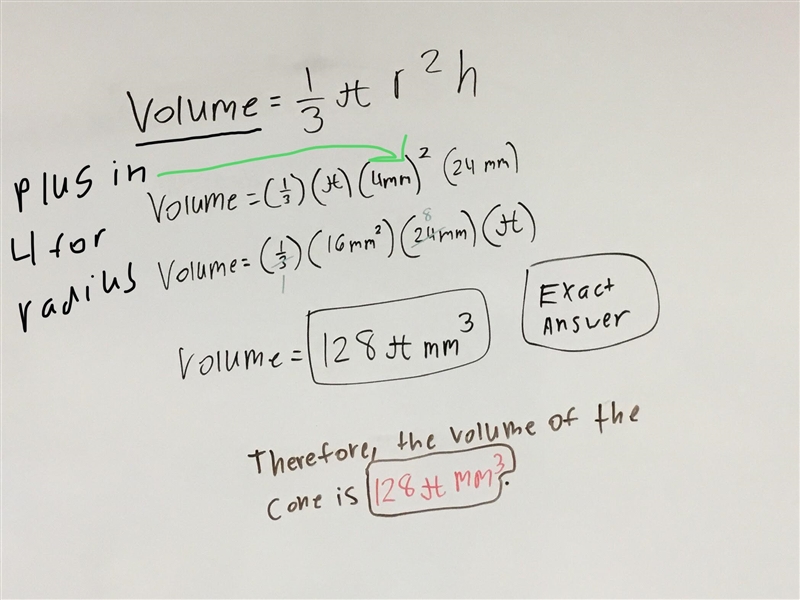 Volume = 1/3 π r² h
plus in
4 for
radius
Volume = (1/3) (π) (4mm)² (24 mm)
8
Volume = (1/3) (16mm²) (24mm) (π)
1
Volume = 128 π mm³
Exact
Answer
Therefore, the volume of the
cone is 128 π mm³.